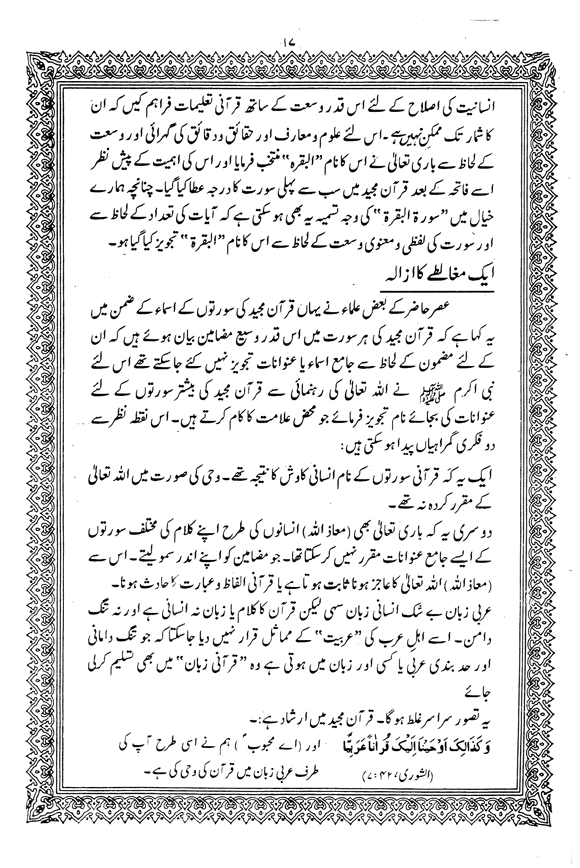 ۱۷
انسانیت کی اصلاح کے لئے اس قدر وسعت کے ساتھ قرآنی تعلیمات فراہم کیں کہ ان
کا شمار تک ممکن نہیں ہے۔ اس لئے علوم و معارف اور حقائق و دقائق کی گہرائی اور وسعت
کے لحاظ سے باری تعالیٰ نے اس کا نام ”البقرہ“ منتخب فرمایا اور اس کی اہمیت کے پیش نظر
اسے فاتحہ کے بعد قرآن مجید میں سب سے پہلی سورت کا درجہ عطا کیا گیا۔ چنانچہ ہمارے
خیال میں ”سورۃ البقرۃ“ کی وجہ تسمیہ یہ بھی ہو سکتی ہے کہ آیات کی تعداد کے لحاظ سے
اور سورت کی لفظی و معنوی وسعت کے لحاظ سے اس کا نام ”البقرۃ“ تجویز کیا گیا ہو۔
ایک مغالطے کا ازالہ
عصر حاضر کے بعض علماء نے یہاں قرآن مجید کی سورتوں کے اسماء کے ضمن میں
یہ کہا ہے کہ قرآن مجید کی ہر سورت میں اس قدر وسیع مضامین بیان ہوئے ہیں کہ ان
کے لئے مضمون کے لحاظ سے جامع اسماء یا عنوانات تجویز نہیں کئے جا سکتے تھے اس لئے
نبی اکرم ﷺ نے اللہ تعالیٰ کی رہنمائی سے قرآن مجید کی بیشتر سورتوں کے لئے
عنوانات کی بجائے نام تجویز فرمائے جو محض علامت کا کام کرتے ہیں۔ اس نقطہ نظر سے
دو فکری گمراہیاں پیدا ہو سکتی ہیں:
ایک یہ کہ قرآنی سورتوں کے نام انسانی کاوش کا نتیجہ تھے۔ وحی کی صورت میں اللہ تعالیٰ
کے مقرر کردہ نہ تھے۔
دوسری یہ کہ باری تعالیٰ بھی (معاذ اللہ) انسانوں کی طرح اپنے کلام کی مختلف سورتوں
کے ایسے جامع عنوانات مقرر نہیں کر سکتا تھا۔ جو مضامین کو اپنے اندر سمو لیتے۔ اس سے
(معاذ اللہ) اللہ تعالیٰ کا عاجز ہونا ثابت ہوتا ہے یا قرآنی الفاظ و عبارت کا حادث ہونا۔
عربی زبان بے شک انسانی زبان سہی لیکن قرآن کا کلام یا زبان نہ انسانی ہے اور نہ تنگ
دامن۔ اسے اہل عرب کی ”عربیت“ کے مماثل قرار نہیں دیا جا سکتا کہ جو تنگ دامانی
اور حد بندی عربی یا کسی اور زبان میں ہوتی ہے وہ ”قرآنی زبان“ میں بھی تسلیم کر لی
جائے
یہ تصور سراسر غلط ہو گا۔ قرآن مجید میں ارشاد ہے:۔
وَكَذَالِكَ اَوْحَيْنَا اِلَيْكَ قُرْاٰنًا عَرَبِيًّا اور (اے محبوب ؐ) ہم نے اسی طرح آپ کی
(الشوریٰ، ۴۲:۷) طرف عربی زبان میں قرآن کی وحی کی ہے۔